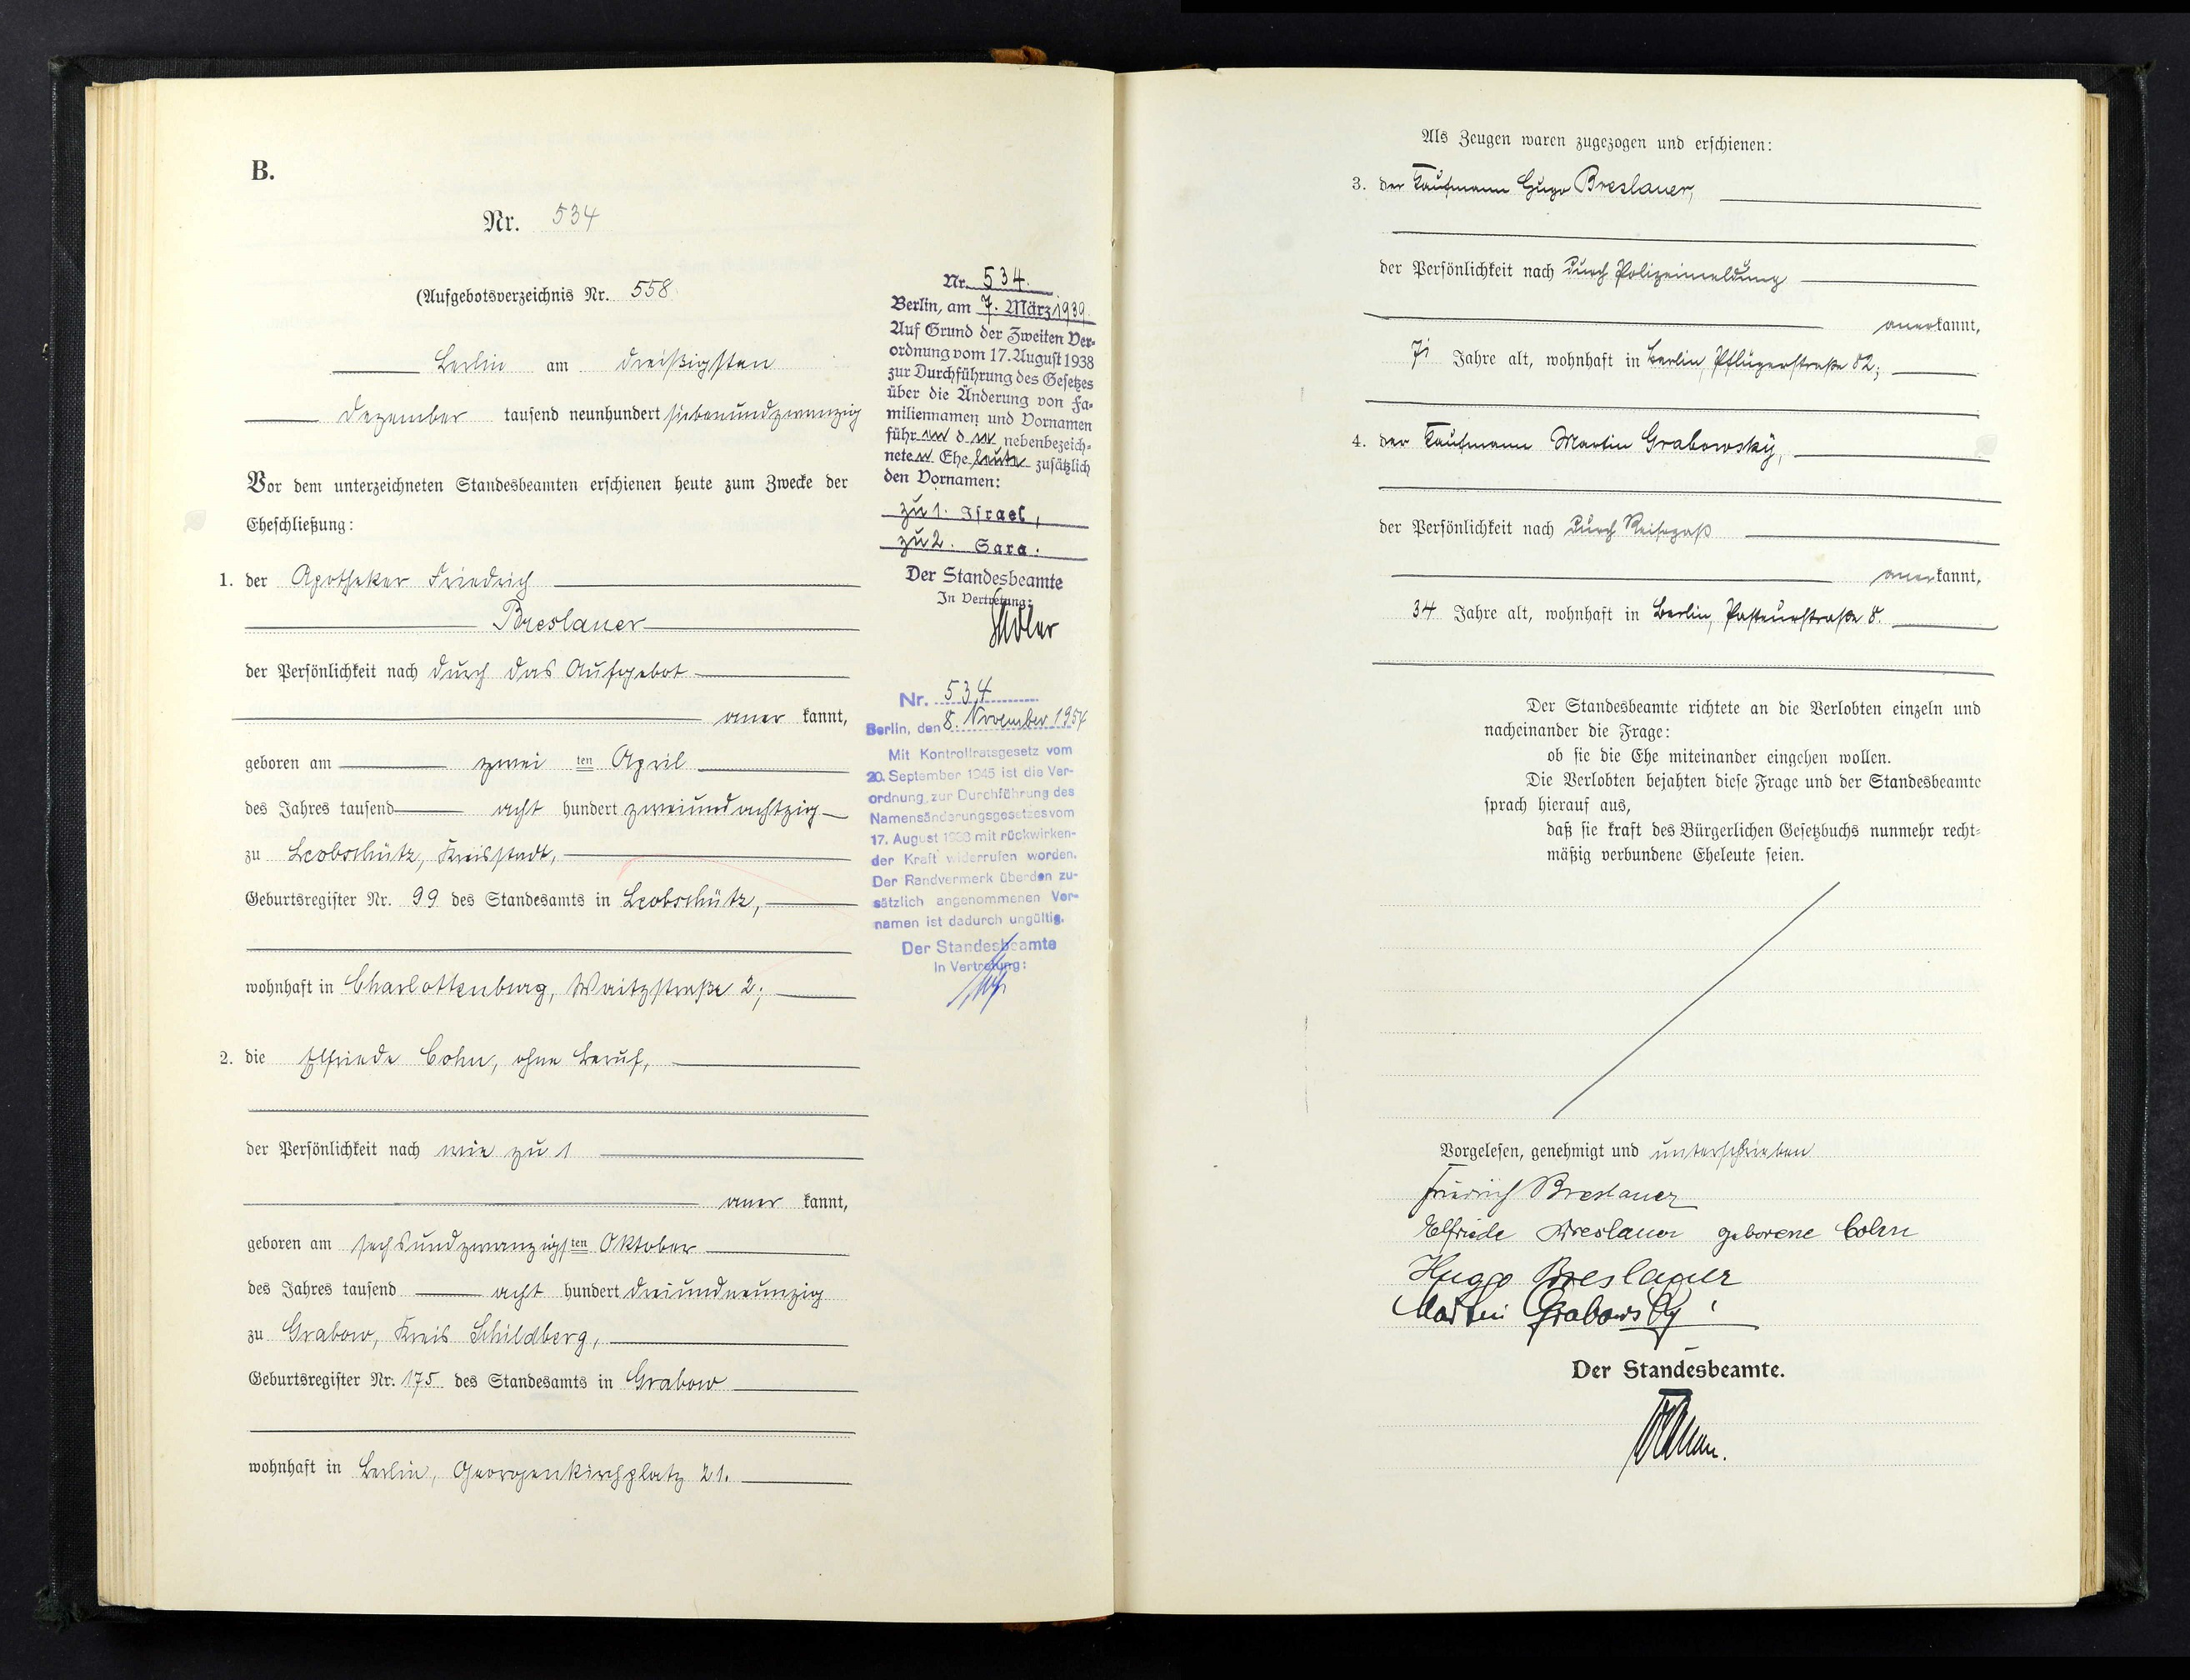 B.
Nr. 534
(Aufgebotsverzeichnis Nr. 558
Berlin am dreißigsten
Dezember tausend neunhundert siebenundzwanzig
Vor dem unterzeichneten Standesbeamten erschienen heute zum Zwecke der
Eheschließung:
1. der Apotheker Friedrich
Breslauer
der Persönlichkeit nach durch das Aufgebot
aner kannt,
geboren am zwei ten April
des Jahres tausend acht hundert zweiundachtzig
zu Leobschütz, Kreisstadt,
Geburtsregister Nr. 99 des Standesamts in Leobschütz,
wohnhaft in Charlottenburg, Waitzstraße 2;
2. die Elfriede Cohn, ohne Beruf,
der Persönlichkeit nach wie zu 1
aner kannt,
geboren am sechsundzwanzigsten Oktober
des Jahres tausend acht hundert dreiundneunzig
zu Grabow, Kreis Schildberg,
Geburtsregister Nr. 175 des Standesamts in Grabow
wohnhaft in Berlin, Georgenkirchplatz 21.
Nr. 534.
Berlin, am 7. März 1939.
Auf Grund der Zweiten Ver-
ordnung vom 17. August 1938
zur Durchführung des Gesetzes
über die Änderung von Fa-
miliennamen und Vornamen
führen die nebenbezeich-
neten Eheleute zusätzlich
den Vornamen:
zu 1. Israel,
zu 2. Sara.
Der Standesbeamte
In Vertretung:
Nr. 534
Berlin, den 8. November 1954
Mit Kontrollratsgesetz vom
20. September 1945 ist die Ver-
ordnung zur Durchführung des
Namensänderungsgesetzes vom
17. August 1938 mit rückwirken-
der Kraft widerrufen worden.
Der Randvermerk über den zu-
sätzlich angenommenen Vor-
namen ist dadurch ungültig.
Der Standesbeamte
In Vertretung:
Als Zeugen waren zugezogen und erschienen:
3. der Kaufmann Hugo Breslauer,
der Persönlichkeit nach durch Polizeimeldung
anerkannt,
71 Jahre alt, wohnhaft in Berlin, Pflügerstraße 82;
4. der Kaufmann Martin Grabowsky,
der Persönlichkeit nach durch Reisepaß
anerkannt,
34 Jahre alt, wohnhaft in Berlin, Pasteurstraße 8.
Der Standesbeamte richtete an die Verlobten einzeln und
nacheinander die Frage:
ob sie die Ehe miteinander eingehen wollen.
Die Verlobten bejahten diese Frage und der Standesbeamte
sprach hierauf aus,
daß sie kraft des Bürgerlichen Gesetzbuchs nunmehr recht-
mäßig verbundene Eheleute seien.
Vorgelesen, genehmigt und unterschrieben
Friedrich Breslauer
Elfriede Breslauer geborene Cohn
Hugo Breslauer
Martin Grabowsky
Der Standesbeamte.